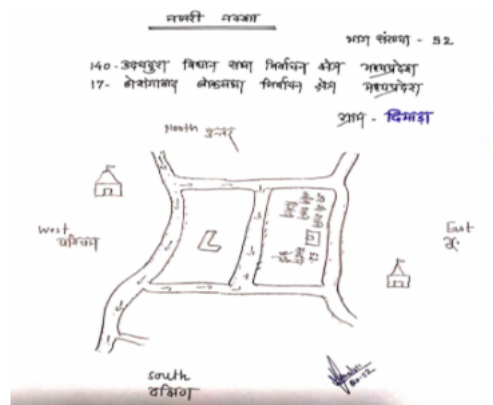 नजरी नक्शा
भाग संख्या - 52
140 - उदयपुरा विधान सभा निर्वाचन क्षेत्र मध्यप्रदेश
17- होशंगाबाद लोकसभा निर्वाचन क्षेत्र मध्यप्रदेश
ग्राम - दिमाड़ा
North उत्तर
West
पश्चिम
East
पू.
South
दक्षिण